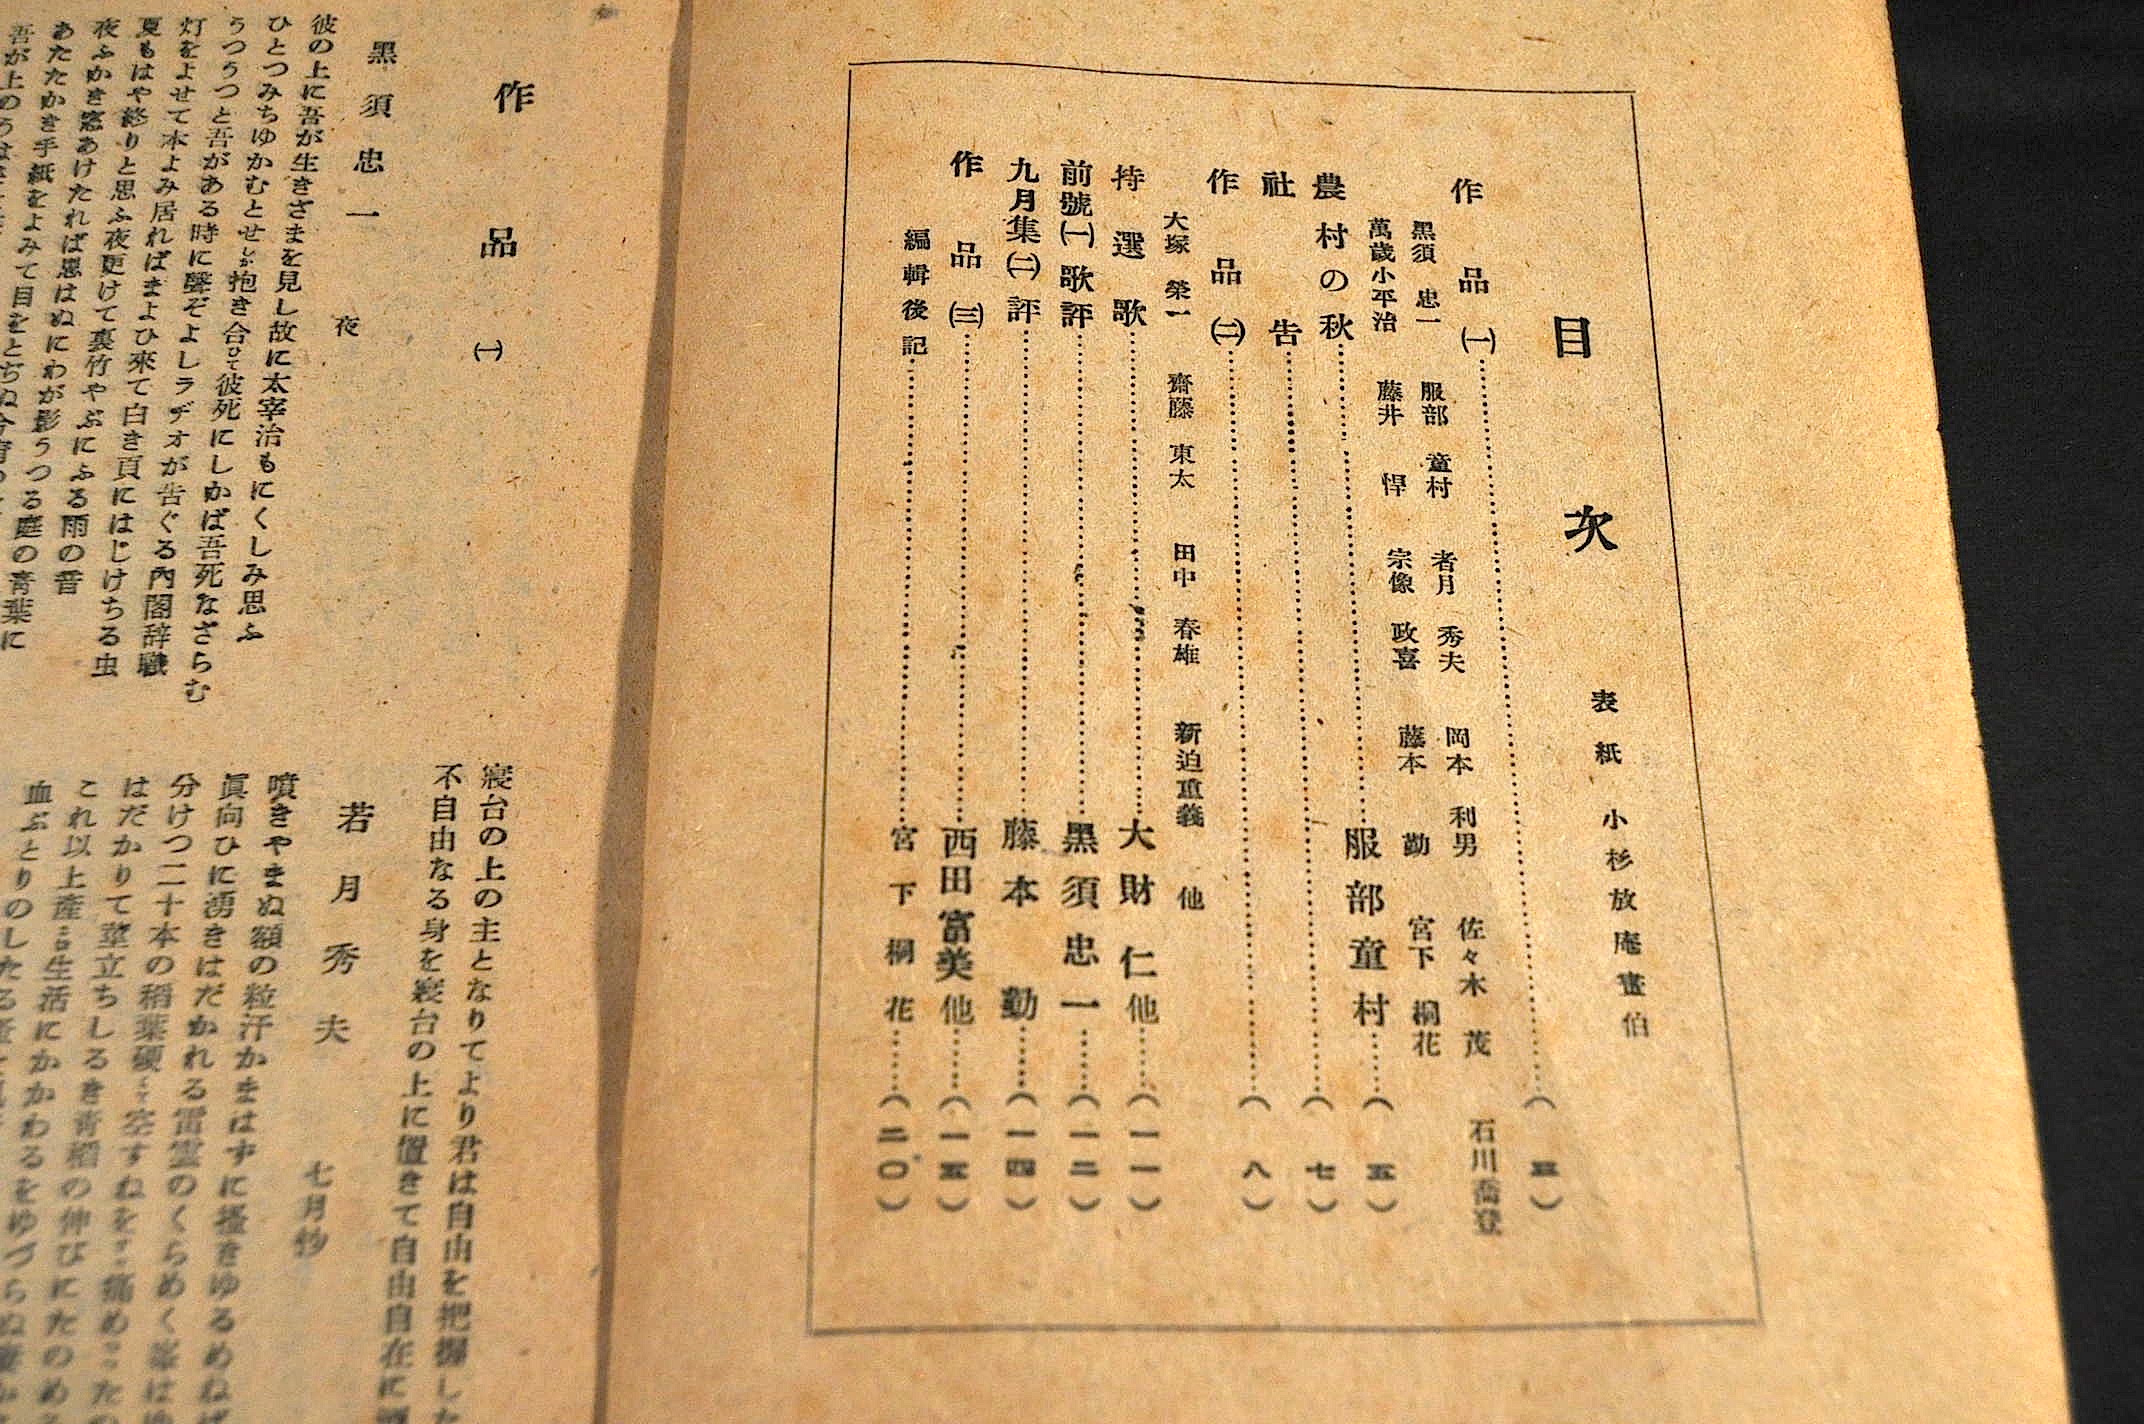 目次
表紙 小杉放庵畫伯
作品(一)……(三)
黑須忠一 服部童村 者月秀夫 岡本利男 佐々木茂 石川喬登
萬歲小平治 藤井悍 宗像政喜 藤本勤 宮下桐花
農村の秋……服部童村……(五)
社告……(七)
作品(二)……(八)
大塚榮一 齋藤東太 田中春雄 新迫重義 他
持選歌……大財仁他……(一一)
前號(一)歌評……黑須忠一……(一二)
九月集(二)評……藤本勤……(一四)
作品(三)……西田富美他……(一五)
編輯後記……宮下桐花……(二〇)
作品(一)
黑須忠一
夜
彼の上に吾が生きざまを見し故に太宰治もにくしみ思ふ
ひとつみちゆかむとせしが抱き合ひて彼死にしかば吾死なざらむ
うつうつと吾がある時に聲ぞよしラヂオが告ぐる內閣辞職
灯をよせて本よみ居ればまよひ來て白き頁にはじけちる虫
夏もはや終りと思ふ夜更けて裏竹やぶにふる雨の音
夜ふかき窓あけたれば思はぬにわが影うつる庭の靑葉に
あたたかき手紙をよみて目をとぢぬ今宵
吾が上の
寢台の上の主となりてより君は自由を把握した
不自由なる身を寢台の上に置きて自由自在に
若月秀夫
七月抄
噴きやまぬ額の粒汗かまはずに搔きゆるめねば
眞向ひに湧きはだかれる雷雲のくらめく峯は
分けつ二十本の稻葉硬くて空すねを
はだかりて莖立ちしるき靑稻の伸びにたのめる
これ以上產二口生活にかかわるをゆづらぬ妻
血ぶとりのしたる